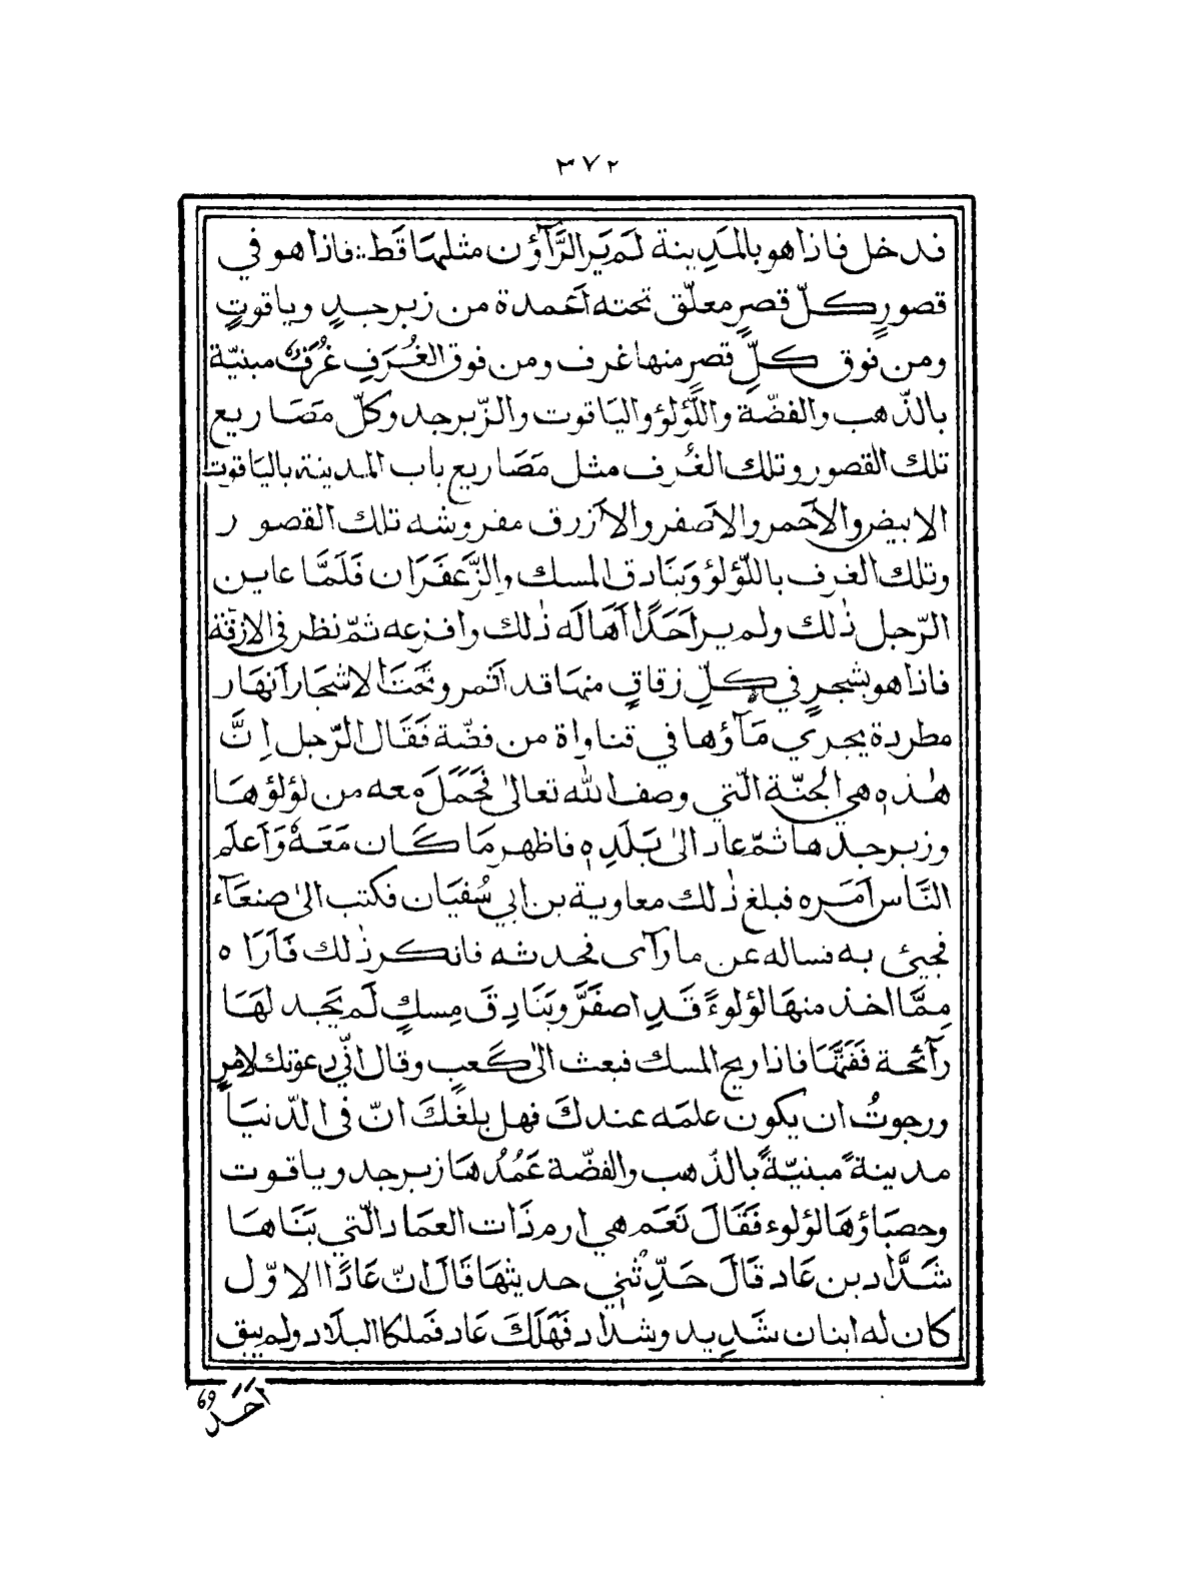 ٣٧٢
فدخل فاذا هو بالمَدِينة لَم يَر الرَّآؤن مثلهَا قَط :: فاذا هو في
قصورٍ كلّ قصرٍ معلّق تحته اَعمدة من زبرجدٍ وياقوتٍ
ومن فوق كلّ قصرٍ منها غرف ومن فوق الغُرَفِ غُرَفٌ مبنيّة
بالذّهب والفضّة واللُّؤلؤ واليَاقوت والزّبرجد وكلّ مَصَاريع
تلك القصور وتلك الغُرف مثل مَصَاريع باب المدينة باليَاقوت
الابيض والاَحمر والاَصفر والاَزرق مفروشه تلك القصور
وتلك الغرف باللّؤلؤ وَبنَادق المسك والزَّعفَرَان فَلَمَّا عاين
الرّجل ذٰلك ولم ير احَدًا اَهَالَه ذٰلك وافزعه ثمّ نظر في الازقّة
فاذا هو بشجرٍ في كلِّ زقاقٍ منهَا قد اَثمر وتَحَتَ الاشجَار اَنهَار
مطردة يجري مَآؤها في قناواة من فضّة فَقَال الرّجل اِنَّ
هٰذهٖ هي الجنّة الّتي وصف الله تعالىٰ فَحَمَلَ معه من لؤلؤهَا
وزبرجدها ثمّ عاد الىٰ بَلَدِهٖ فاظهر مَا كَان مَعَهٗ وَاَعلَم
النَّاس اَمرَه فبلغ ذٰلك معاوية بن ابي سُفيَان فكتب الىٰ صنعَآء
فجيئ به فساله عن ما رآى فحدثه فانكر ذٰلك فَاَرَاه
مِمَّا اخذ منهَا لؤلوءً قَدِ اصفَرَّ وبَنَادِقَ مِسكٍ لَم يَجد لهَا
رآئحة فَفَتَّهَا فاذا ريح المسك فبعث الىٰ كَعبٍ وقال انّي دعوتك لامرٍ
ورجوتُ ان يكون علمه عندكَ فهل بلغَكَ انّ في الدّنيَا
مدينةً مبنيّةً بالذّهب والفضّة عَمُدُهَا زبرجد وياقوت
وحصبَاؤهَا لؤلوء فَقَالَ نَعَم هي ارم ذَات العمَاد الّتي بَنَاهَا
شَدَّاد بن عَاد قَالَ حَدِّثني حديثهَا قَالَ انّ عَادًا الاوّل
كان له ابنان شَدِيد وشداد فَهَلَكَ عَاد فَملكا البلَاد ولم يبق
اَحَد
69